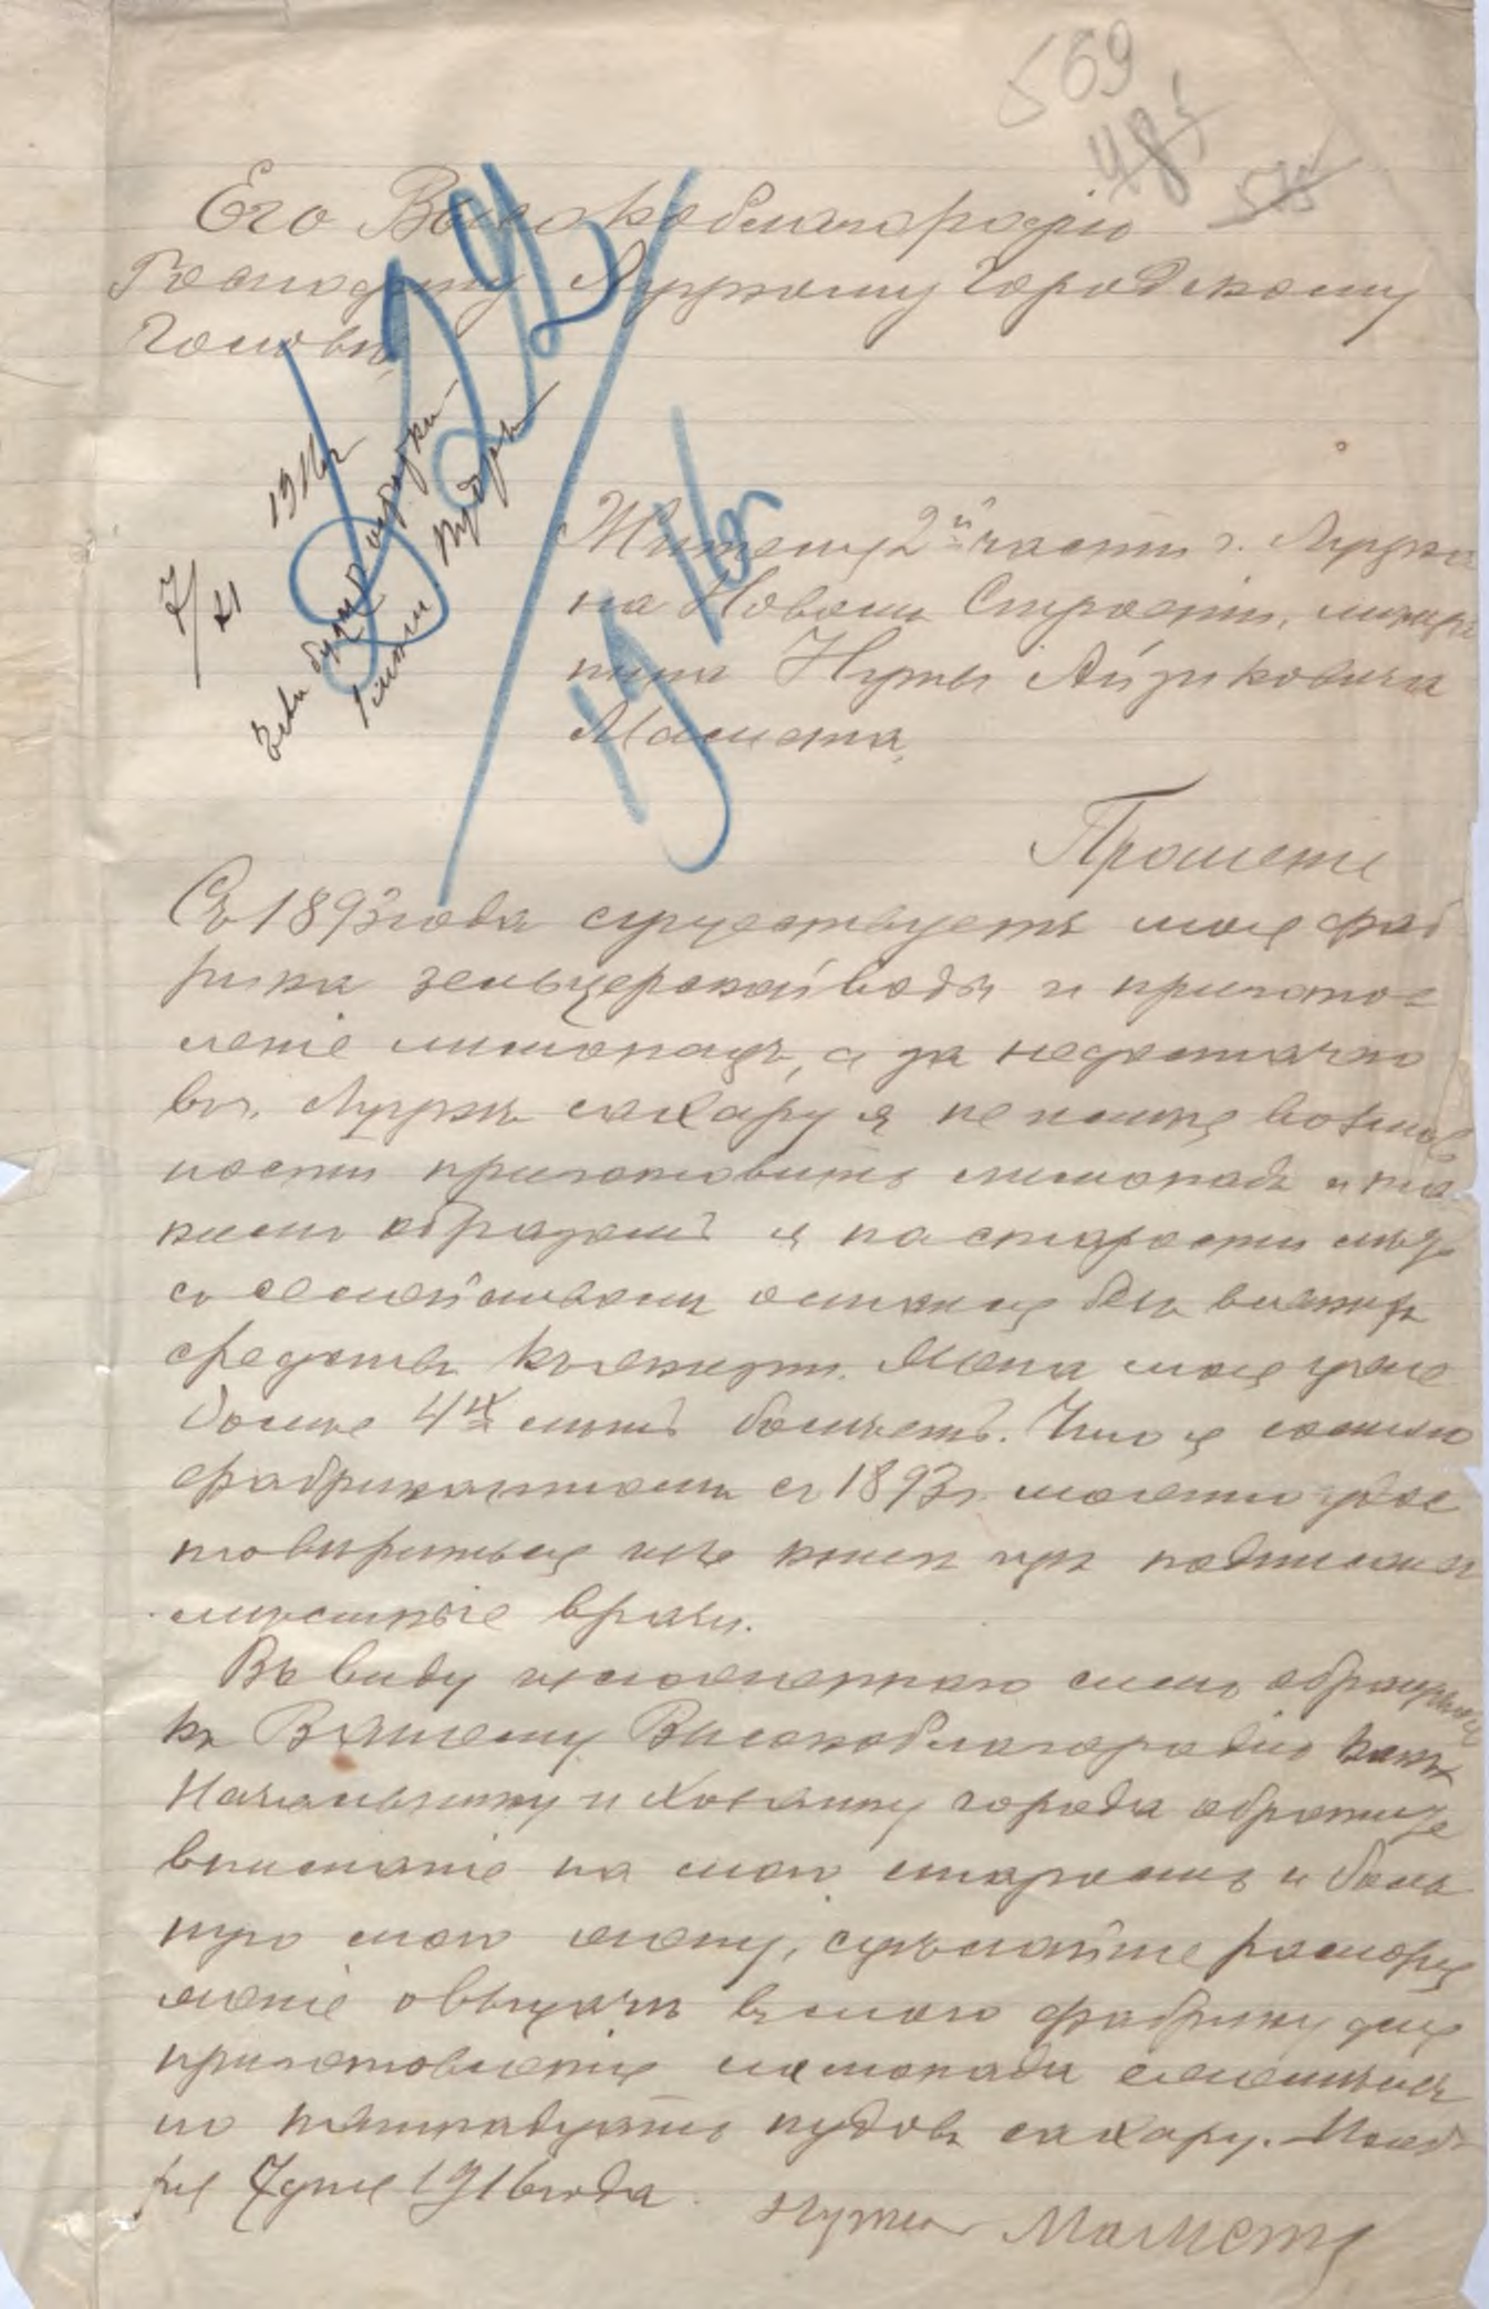 569
485
575
Его Высокоблагородію
Господину Луцкому Городскому
Головѣ,
7/XI 1916 г
Если будутъ отрубки
1 пудъ
19/16
Жителя 2й части г. Луцка
на Новомъ Строеніи, мѣща
нина Нуты Айзиковича
Мамета,
Прошеніе
Съ 1893 года существуетъ моя фаб
рика зельцерской воды и приготов
леніе лимонадъ, а за недостачею
въ г. Луцкѣ сахару я не имѣю возмож
ности приготовить лимонадъ и та
кимъ образомъ я на старости лѣтъ
со семействомъ остался безъ всякихъ
средствъ къ жизни. Жена моя уже
больше 4х лѣтъ болѣетъ. Что я состою
фабрикантомъ съ 1893 г. можетъ удос
товѣриться изъ книгъ при подписяхъ
мѣстные врачи.
Въ виду изложеннаго симъ обращаюсь
къ Вашему Высокоблагородію какъ
Начальнику и Хозяину города обратите
вниманіе на мою старость и боль
ную мою жену, сдѣлайте распоря
женіе о выдачѣ въ мою фабрику для
приготовленія лимонада ежемѣсяч
но пятнадцать пудовъ сахару. Нояб
ря 7 дня 1916 года.
Нута Маметъ